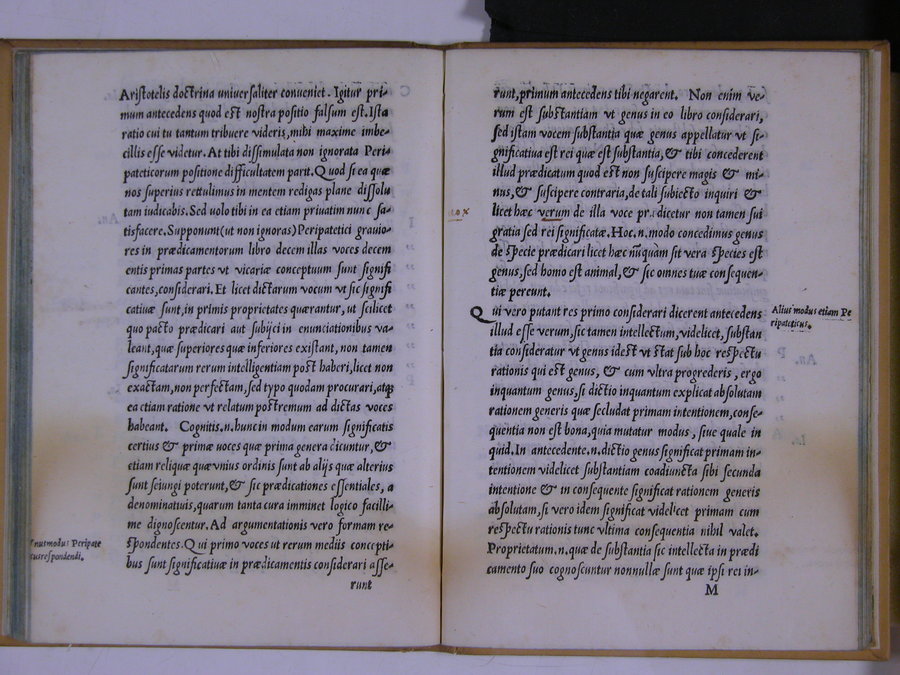 Aristotelis doctrina universaliter conveniet. Igitur pri-
mum antecedens quod est nostra positio falsum est. Ista
ratio cui tu tantum tribuere videris, mihi maxime imbe-
cillis esse videtur. At tibi dissimulata non ignorata Peri-
pateticorum positione difficultatem parit. Quod si ea quæ
nos superius rettulimus in mentem redigas plane dissolu
tam iudicabis. Sed uolo tibi in ea etiam priuatim nunc sa-
tisfacere. Supponunt (ut non ignoras) Peripatetici grauio-
res in prædicamentorum libro decem illas voces decem
entis primas partes vt vicariæ conceptuum sunt signifi
cantes, considerari. Et licet dictarum vocum vt sic signifi
catiuæ sunt, in primis proprietates quærantur, ut scilicet
quo pacto prædicari aut subijci in enunciationibus va-
leant, quæ superiores quæ inferiores existant, non tamen
significatarum rerum intelligentiam post haberi, licet non
exactam, non perfectam, sed typo quodam procurari, atq;
ea etiam ratione vt relatum postremum ad dictas voces
habeant. Cognitis.n.hunc in modum earum significatis
certius & primæ uoces quæ prima genera dicuntur, &
etiam reliquæ quæuuius ordinis sunt ab alijs quæ alterius
sunt seiungi poterunt, & sic prædicationes essentiales, a
denominatiuis, quarum tanta cura imminet logico facilli-
me dignoscentur. Ad argumentationis vero formam re-
spondentes. Qui primo voces ut rerum mediis concepti-
bus sunt significatiuæ in prædicamentis considerari asse-
runt
modus Peripate
respondendi.
runt, primum antecedens tibi negarent. Non enim ve-
rum est substantiam vt genus in eo libro considerari,
sed istam vocem substantia quæ genus appellatur vt si-
gnificatiua est rei quæ est substantia, & tibi concederent
illud prædicatum quod est non suscipere magis & mi-
nus, & suscipere contraria, de tali subiecto inquiri &
licet hæc verum de illa voce prædicetur non tamen sui
gratia sed rei significatæ. Hoc.n.modo concedimus genus
de specie prædicari licet hæc nūquàm sit vera species est
genus, sed homo est animal, & sic omnes tuæ consequen-
tiæ pereunt.
Qui vero putant res primo considerari dicerent antecedens
illud esse verum, sic tamen intellectum, videlicet, substan
tia consideratur vt genus idest vt stat sub hoc respectu
rationis qui est genus, & cum vltra progrederis, ergo
inquantum genus, si dictio inquantum explicat absolutam
rationem generis quæ secludat primam intentionem, conse-
quentia non est bona, quia mutatur modus, siue quale in
quid. In antecedente.n.dictio genus significat primam in-
tentionem videlicet substantiam coadiuncta sibi secunda
intentione & in consequente significat rationem generis
absolutam, si vero idem significat videlicet primam cum
respectu rationis tunc vltima consequentia nihil valet.
Proprietatum.n.quæ de substantia sic intellecta in prædi
camento suo cognoscuntur nonnullæ sunt quæ ipsi rei in-
M
Alius modus etiam Pe
ripateticus.